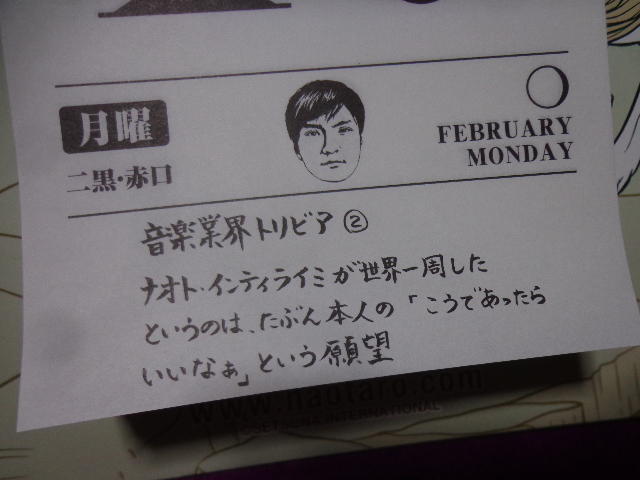 月曜
二黒・赤口
FEBRUARY
MONDAY
音楽業界トリビア②
ナオト・インティライミが世界一周した
というのは、たぶん本人の「こうであったら
いいなぁ」という願望
www.naotaro.com
SETSUNA INTERNATIONAL